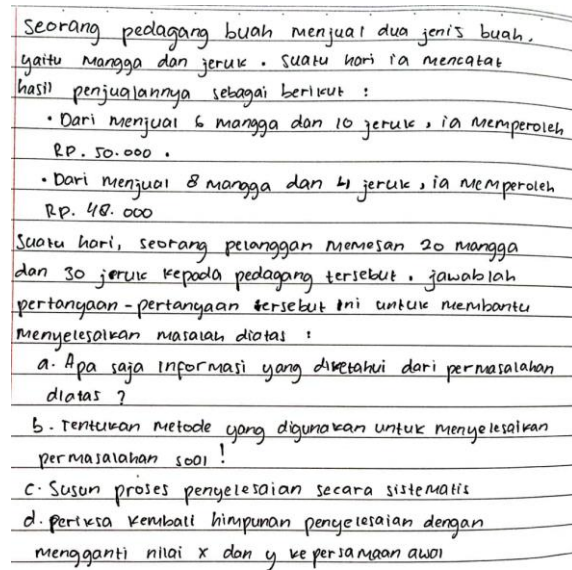 Seorang pedagang buah menjual dua jenis buah,
yaitu Mangga dan jeruk. Suatu hari ia mencatat
hasil penjualannya sebagai berikut :
• Dari menjual 6 mangga dan 10 jeruk, ia memperoleh
RP. 50.000.
• Dari menjual 8 mangga dan 4 jeruk, ia memperoleh
RP. 48.000
Suatu hari, seorang pelanggan memesan 20 mangga
dan 30 jeruk kepada pedagang tersebut. jawablah
pertanyaan-pertanyaan tersebut ini untuk membantu
Menyelesaikan masalah diatas :
a. Apa saja informasi yang diketahui dari permasalahan
diatas ?
b. Tentukan metode yang digunakan untuk menyelesaikan
permasalahan soal !
C. Susun proses penyelesaian secara sistematis
d. periksa kembali himpunan penyelesaian dengan
mengganti nilai x dan y ke persamaan awal